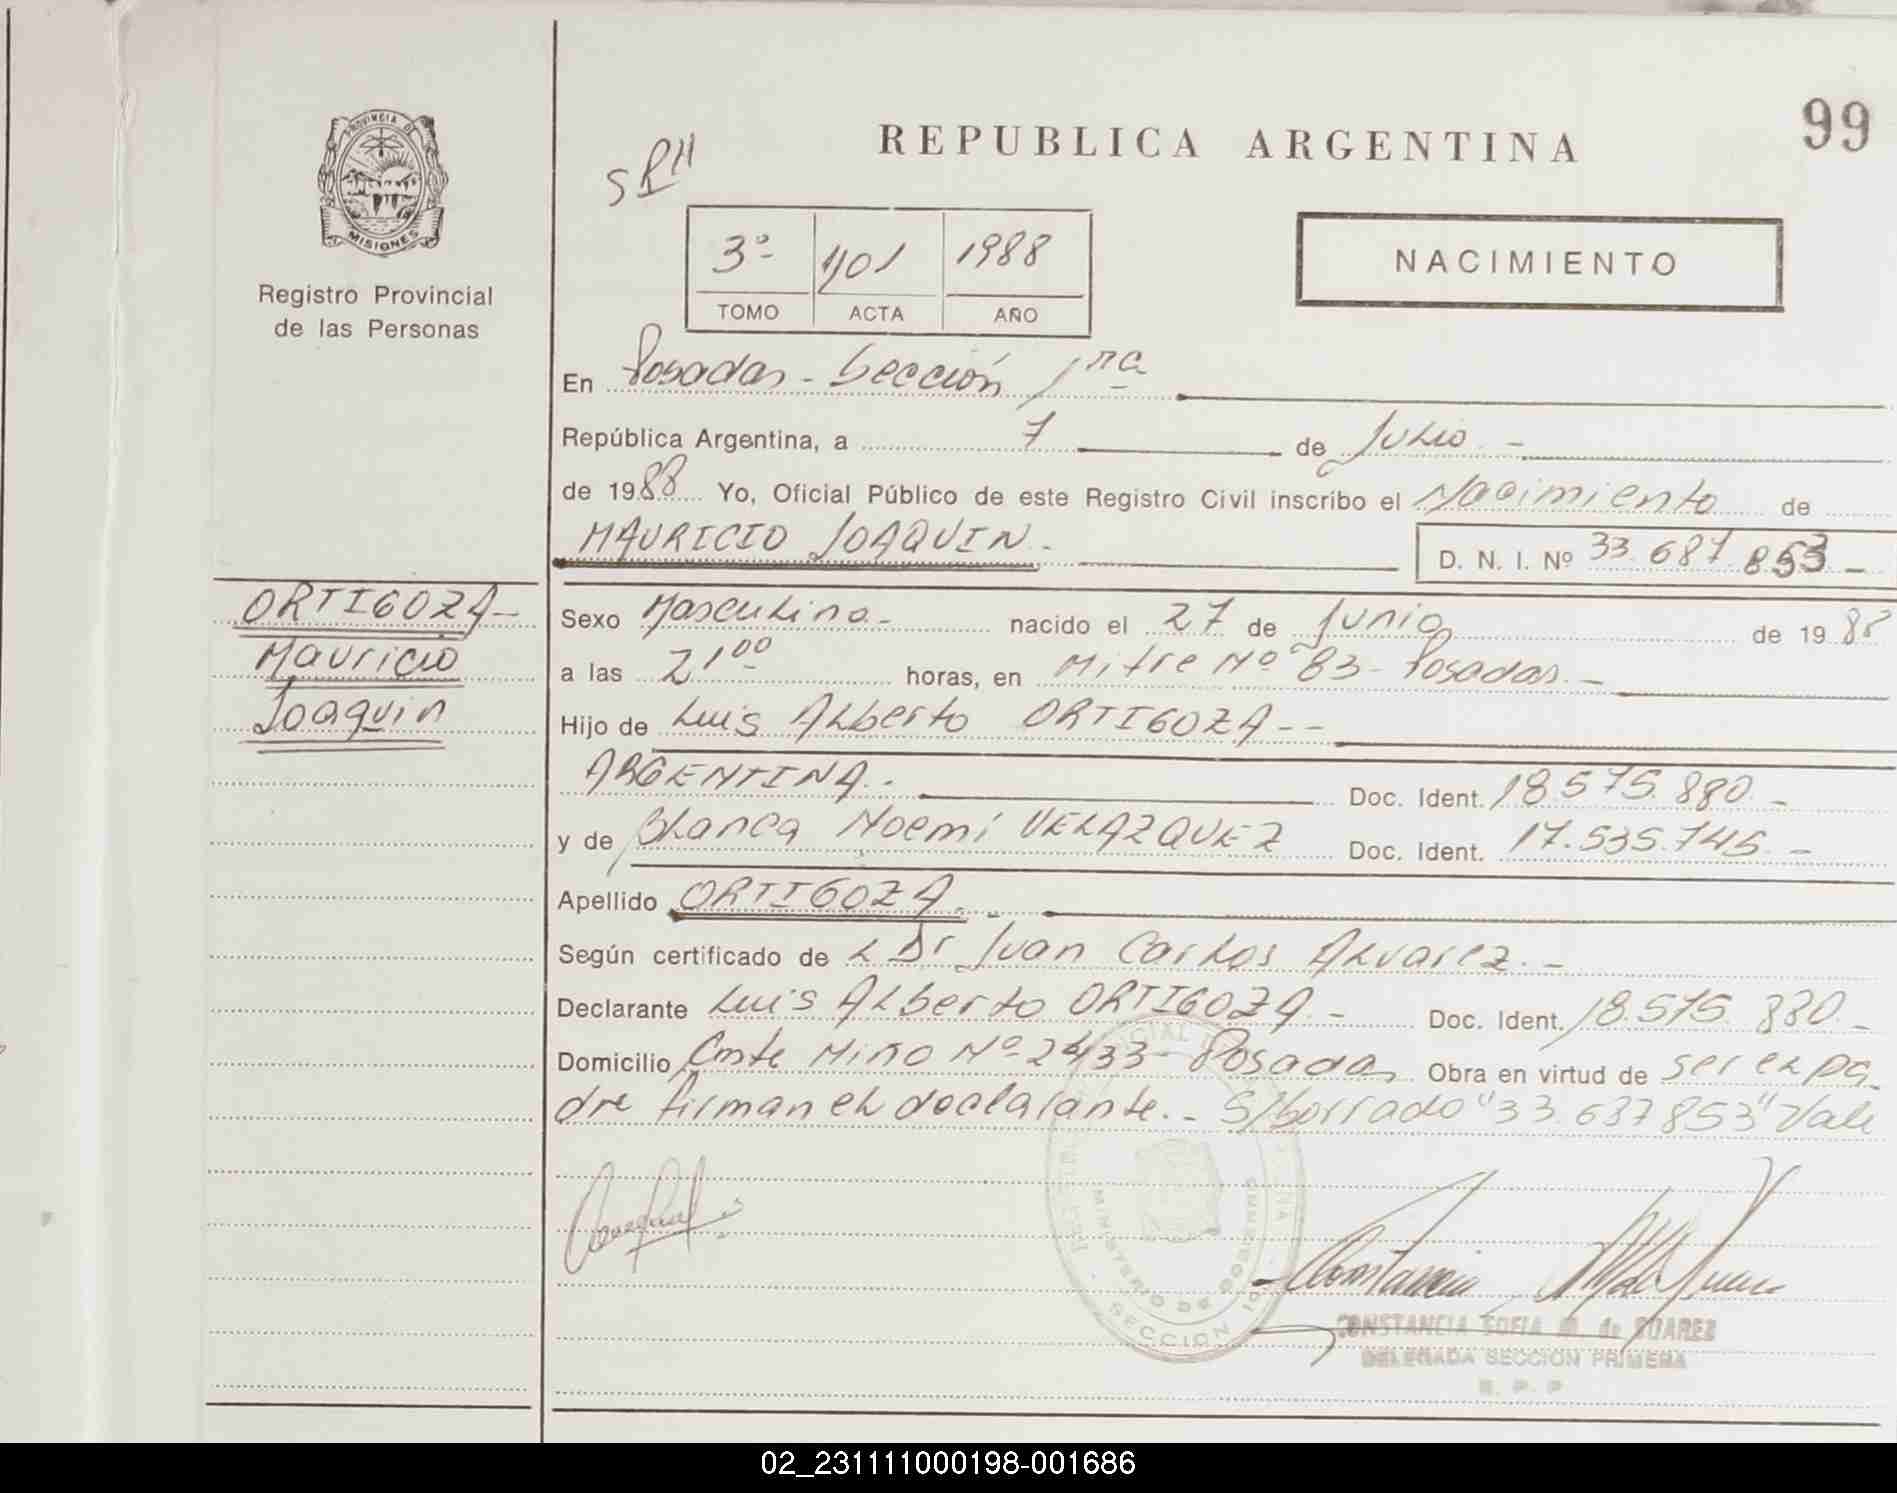 99
REPUBLICA ARGENTINA
SRH
PROVINCIA DE
MISIONES
Registro Provincial
de las Personas
3º- 401 1988
TOMO ACTA AÑO
NACIMIENTO
En Posadas - Sección 1ra
República Argentina, a 7 de Julio -
de 1988 Yo, Oficial Público de este Registro Civil inscribo el Nacimiento de
MAURICIO JOAQUIN.-
D. N. I. Nº 33.687.853-
ORTIGOZA-
Mauricio
Joaquin
Sexo Masculino.- nacido el 27 de Junio de 1988
a las 21 00 horas, en Mitre Nº 83 - Posadas.-
Hijo de Luis Alberto ORTIGOZA--
ARGENTINA.- Doc. Ident. 18.575.880.-
y de Blanca Noemí VELAZQUEZ Doc. Ident. 17.535.745.-
Apellido ORTIGOZA.-
Según certificado de L Dr Juan Carlos Alvarez.-
Declarante Luis Alberto ORTIGOZA.- Doc. Ident. 18.575.880.-
Domicilio Cmte Miño Nº-2433- Posadas Obra en virtud de ser el pa-
dre firman el declarante.- S/borrado "33.687.853" Vale
MINISTERIO DE GOBIERNO
SECCION
CONSTANCIA SOFIA M. de SUAREZ
DELEGADA SECCION PRIMERA
R. P. P
02_231111000198-001686